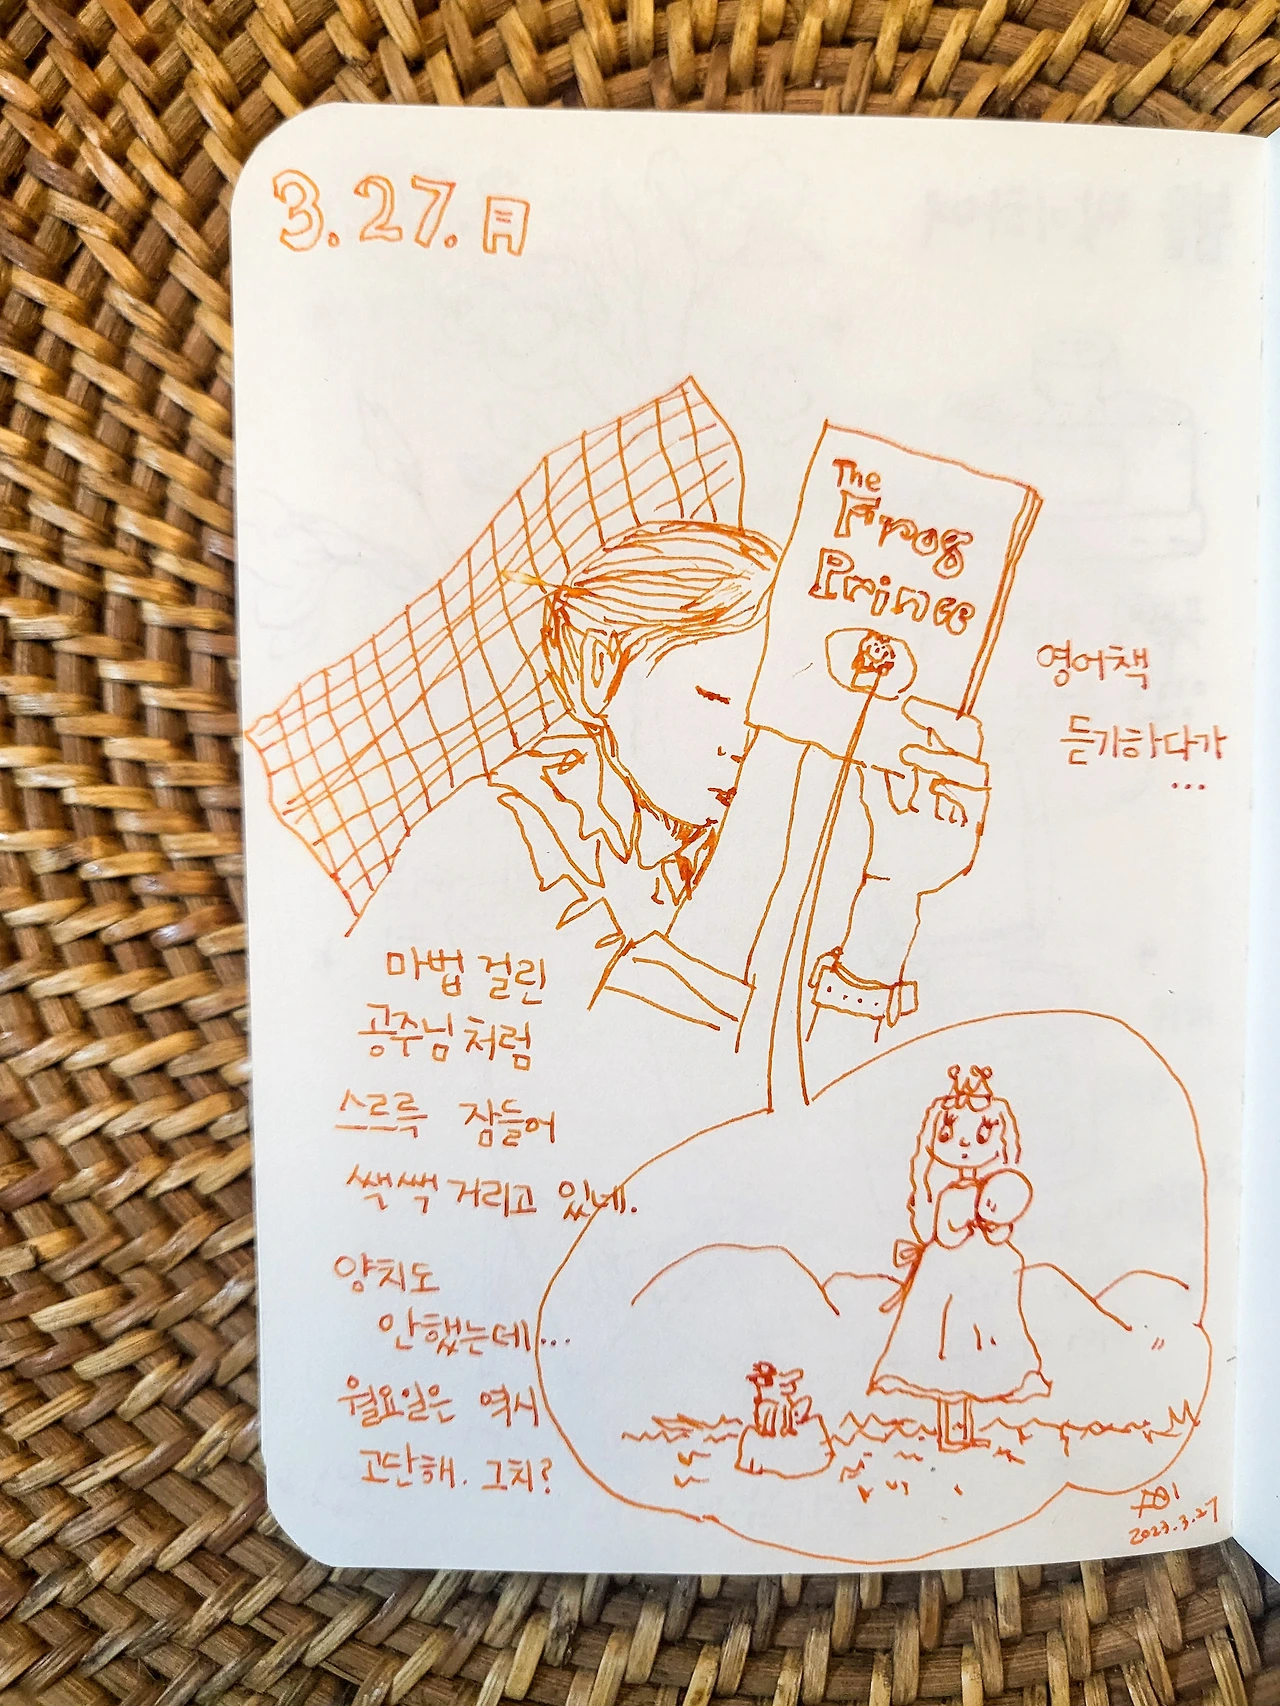 3. 27. 月
The
Frog
Prince
영어책
듣기하다가
...
마법 걸린
공주님처럼
스르륵 잠들어
쌕쌕 거리고 있네.
양치도
안했는데...
월요일은 역시
고단해. 그치?
2023.3.27